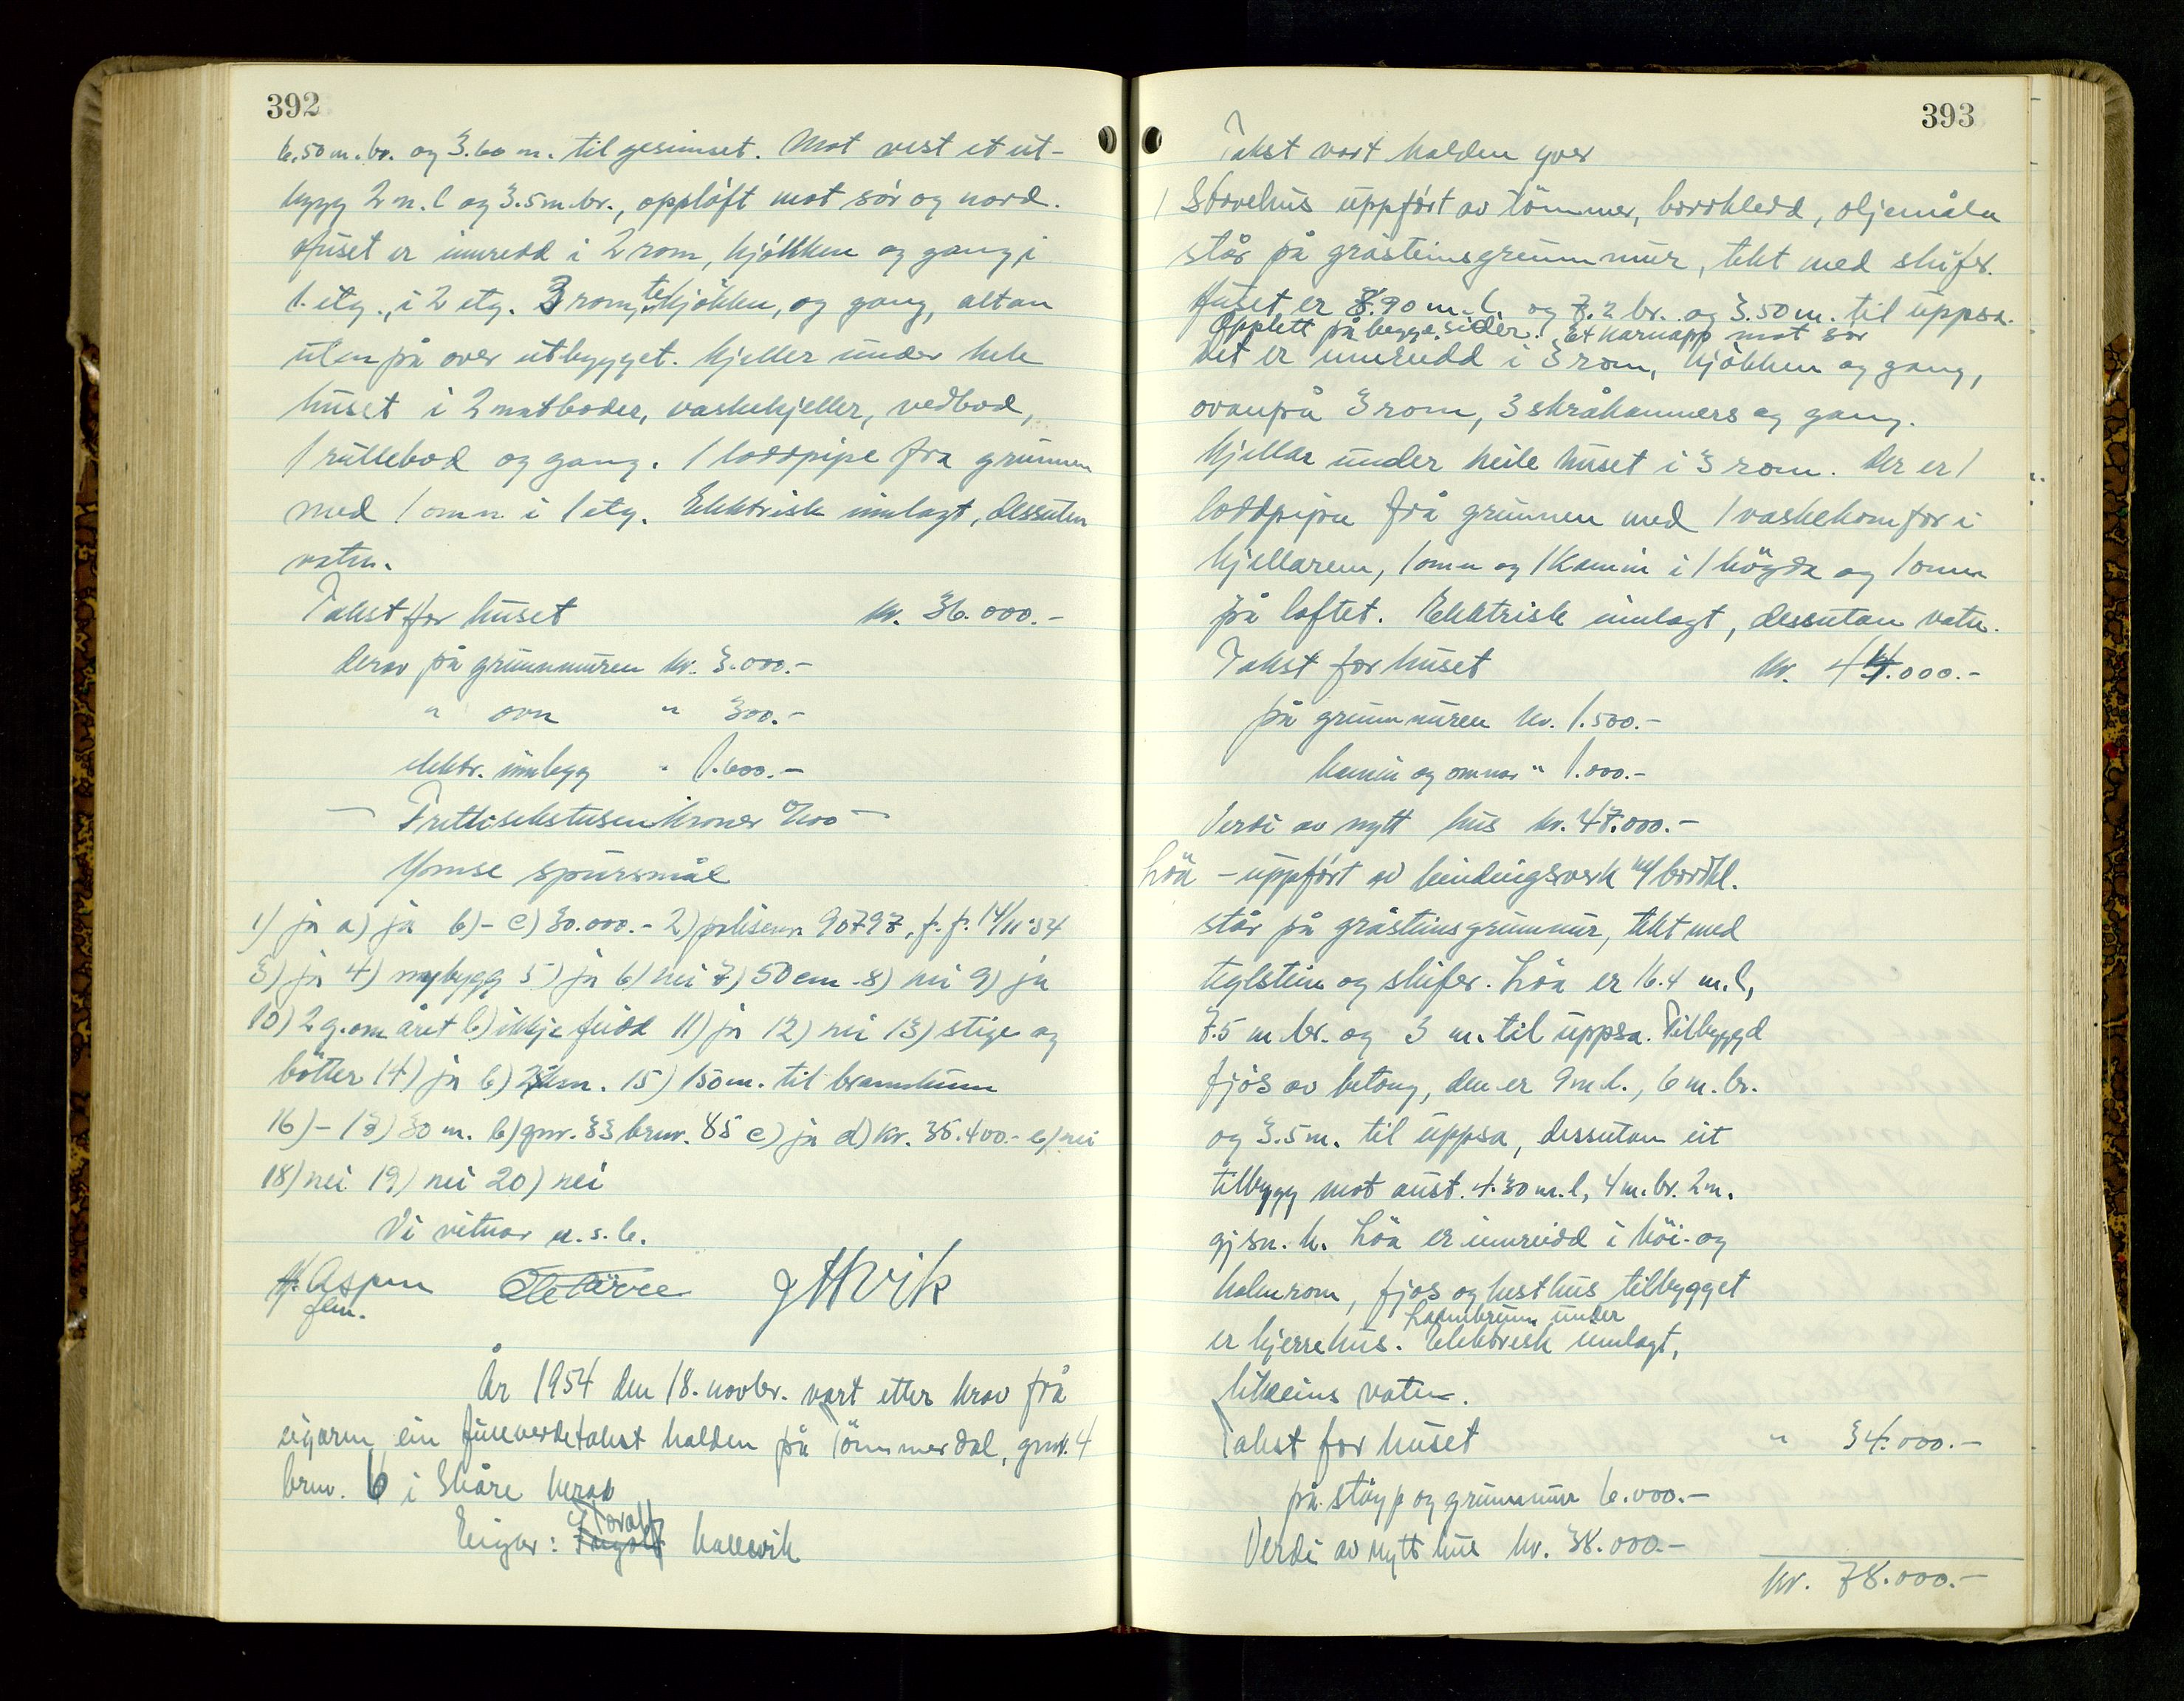 392
6.50 m. br. og 3.60 m. til gesimset. Mot vest et ut-
bygg 2 m. l og 3.5 m. br., oppløft mot sör og nord.
Huset er innredd i 2 rom, kjökken og gang i
1. etg., i 2 etg. 3 rom, tekjökken, og gang, altan
uten på over utbygget. Kjeller under hele
huset i 2 matboder, vaskekjeller, vedbod,
1 rullebod og gang. 1 loddpipe fra grunnen
med 1 omn i 1 etg. Elektrisk innlagt, dessuten
vatn.
Takst for huset kr. 36.000.-
derav på grunnmuren kr. 3.000.-
" ovn " 300.-
elektr. innlegg " 1.600.-
— Trettisekstusen kroner 0/100 —
Ymse spursmål
1) ja a) ja b) - c) 30.000.- 2) polisenr. 90797, f. f. 14/11-54
3) ja 4) nybygg 5) ja 6) nei 7) 50 cm 8) nei 9) ja
10) 2 g. om året b) ikkje feidd 11) ja 12) nei 13) stige og
bötter 14) ja b) km. 15) 150 m. til brannkum
16) - 17) 30 m. b) gnr. 33 brnr. 85 c) ja d) kr. 36.400.- e) nei
18) nei 19) nei 20) nei
Vi vitnar u. s. b.
H. Aspen J H Vik
flm.
År 1954 den 18. novbr. vart etter krav frå
eigaren ein fulleverdetakst halden på Tömmerdal, gnr. 4
brnr. 6 i Skåre herad
Eigar: Toralf Kallevik
393
Takst vart halden yver
1 Stovehus uppfört av tömmer, bordkledd, oljemåla
står på gråsteinsgrunnmur, tekt med skifer.
Huset er 8.90 m. l. og 7.2 br. og 3.50 m. til uppsa.
Opplett på begge sider. Et karnapp mot sör
Det er innreidd i 3 rom, kjökken og gang,
ovanpå 3 rom, 3 skråkammers og gang.
Kjellar under heile huset i 3 rom. Der er 1
loddpipa frå grunnen med 1 vaskekomfor i
kjellaren, 1 omn og 1 Kamin i 1 högda og 1 omn
på loftet. Elektrisk innlagt, dessutan vatn.
Takst for huset kr. 44.000.-
på grunnmuren kr. 1.500.-
kamin og omnar " 1.000.-
Verdi av nytt hus kr. 47.000.-
Löa - uppfört av bindingsverk m/ bordkl.
står på gråsteinsgrunnmur, tekt med
teglstein og skifer. Löa er 16.4 m. l,
7.5 m. br. og 3 m. til uppsa. Tilbyggd
fjös av betong, den er 9 m l., 6 m. br.
og 3.5 m. til uppsa, dessutan eit
tilbygg mot aust. 4.30 m. l, 4 m. br. 2 m.
gj sn. h. Löa er innreidd i höi- og
halmrom, fjos og hesthus tilbygget
Laembrunn under
er kjerrehus. Elektrisk innlagt,
likeeins vatn.
Takst for huset " 34.000.-
på støyp og grunnmur 6.000.-
Verdi av nytt hus kr. 38.000.-
kr. 78.000.-